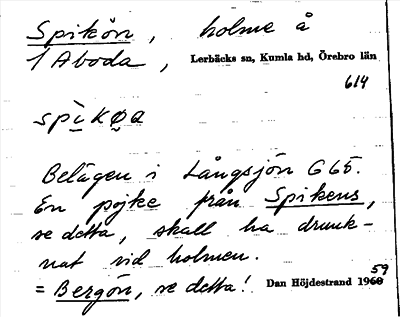 Spikön, holme å
1 Aboda, Lerbäcks sn, Kumla hd, Örebro län
614
spìkøa
Belägen i Långsjön G65.
En pojke från Spikens,
se detta, skall ha drunk-
nat vid holmen.
= Bergön, se detta! Dan Höjdestrand 1960 59